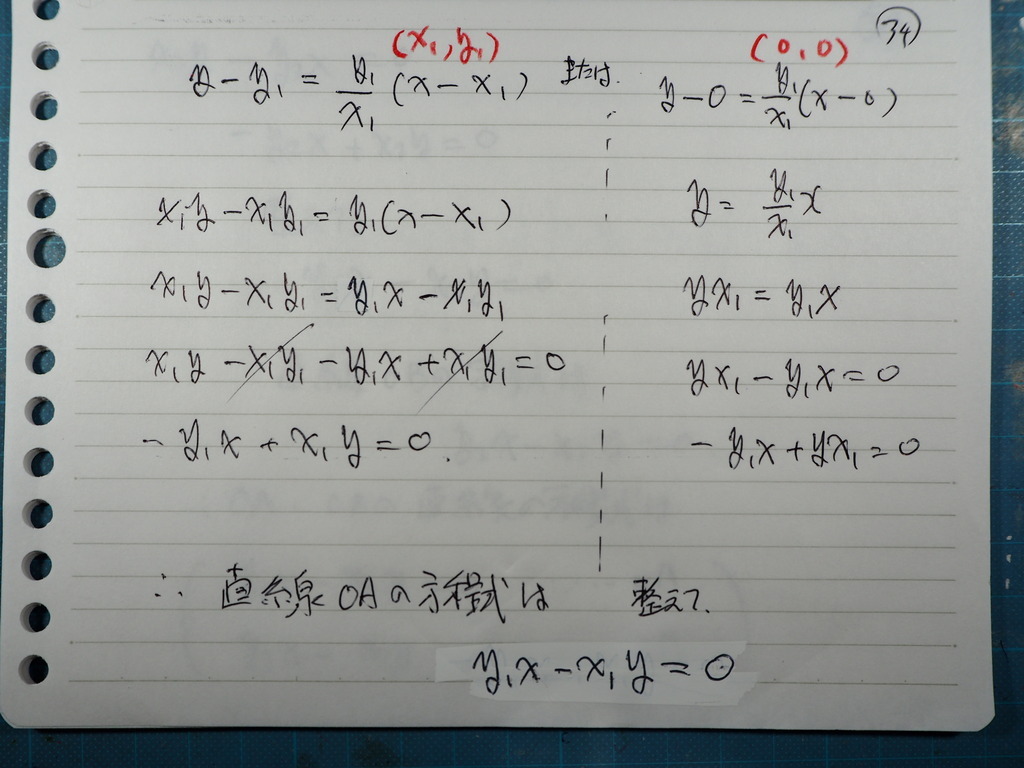 34
(x₁, y₁)
(0, 0)
y - y₁ = y₁/x₁ (x - x₁) または.
y - 0 = y₁/x₁ (x - 0)
x₁y - x₁y₁ = y₁(x - x₁)
y = y₁/x₁ x
x₁y - x₁y₁ = y₁x - x₁y₁
yx₁ = y₁x
x₁y - x₁y₁ - y₁x + x₁y₁ = 0
yx₁ - y₁x = 0
- y₁x + x₁y = 0.
- y₁x + yx₁ = 0
∴ 直線OAの方程式は 整えて.
y₁x - x₁y = 0